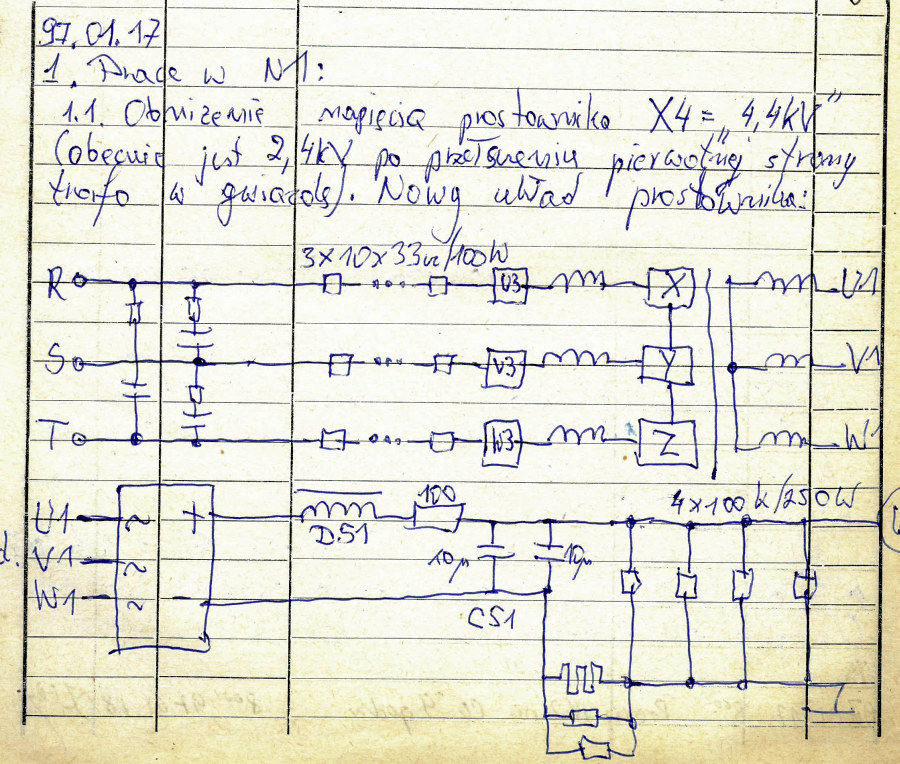 97.01.17
1. Prace w N1:
1.1. Obniżenie napięcia prostownika X4 = „4,4kV”
(obecnie jest 2,4kV po przełączeniu pierwotnej strony
trafo w gwiazdę). Nowy układ prostownika:
3x10x33Ω/100W
R U3 X U1
S V3 Y V1
T W3 Z W1
4x100k/250W
U1 ~ + 100
DS1
V1 ~ 10µ 10µ
W1 ~ -
CS1